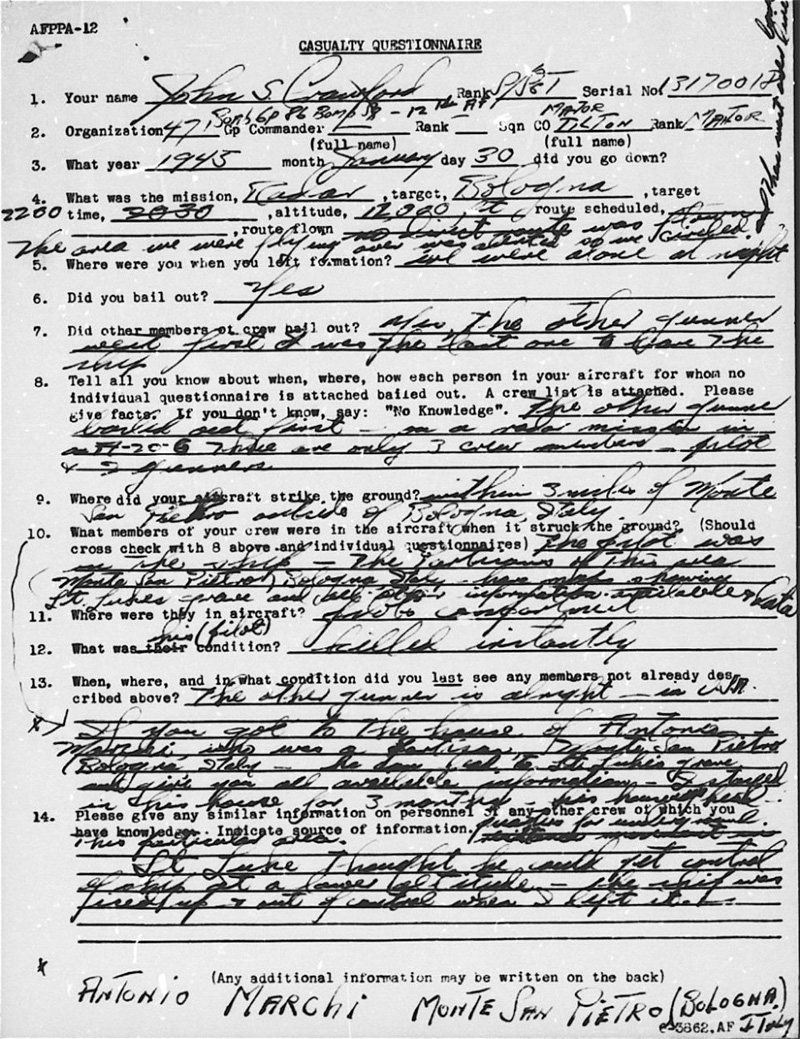 AFPPA-12
CASUALTY QUESTIONNAIRE
1. Your name John S. Crawford Rank S/SGT Serial No. 13170018
2. Organization 47 Bomb Gp 86 Bomb - 12 AF Gp Commander Rank Sqn CO MAJOR TILTON Rank MAJOR
(full name) (full name)
3. What year 1945 month January day 30 did you go down?
4. What was the mission, Radar, target, Bologna, target
2200 time, 2030, altitude, 12,000 ft route scheduled,
, route flown no direct route was flown
The area we were flying over was alerted so we circled
5. Where were you when you left formation? we were alone at night
6. Did you bail out? Yes
7. Did other members of crew bail out? yes, the other gunner
went first I was the last one to leave the
ship
8. Tell all you know about when, where, how each person in your aircraft for whom no
individual questionnaire is attached bailed out. A crew list is attached. Please
give facts. If you don't know, say: "No Knowledge". The other gunner
bailed out first - in a mission in
A-20-G There are only 3 crew members - pilot
& 2 gunners
9. Where did your aircraft strike the ground? within 3 miles of Monte
San Pietro outside of Bologna, Italy.
10. What members of your crew were in the aircraft when it struck the ground? (Should
cross check with 8 above and individual questionnaires) The pilot was
in the ship - The Partisans of this area
Monte San Pietro, Bologna Italy - have maps showing
Lt. Lukes grave and all other information available & data
11. Where were they in aircraft? pilots compartment
his (pilot)
12. What was their condition? killed instantly
13. When, where, and in what condition did you last see any members not already des
cribed above? The other gunner is alright - in
* If you got to the house of Antonio
Marchi who was a Partisan, Monte San Pietro
(Bologna, Italy) - he can lead to Lt Lukes grave
and give you all available information - I stayed
in this house for 3 months - his house
14. Please give any similar information on personnel of any other crew of which you
have knowledge. Indicate source of information.
this particular area.
Lt Luke thought he could get control
of ship at a lower altitude - the ship was
fired up & out of control when I left it.
(Any additional information may be written on the back)
* ANTONIO MARCHI MONTE SAN PIETRO (BOLOGNA.) ITALY
6-3862,AF